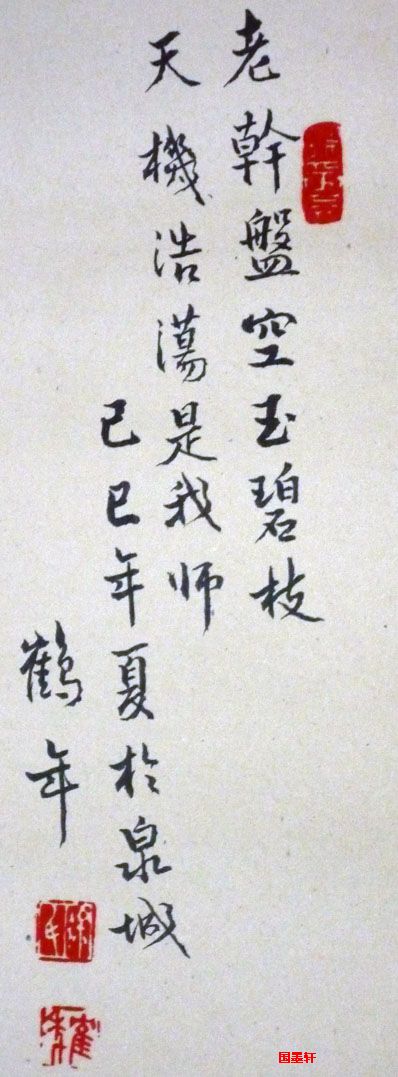 老幹盤空玉碧枝
天機浩蕩是我师
己巳年夏於泉城
鶴年
国墨轩